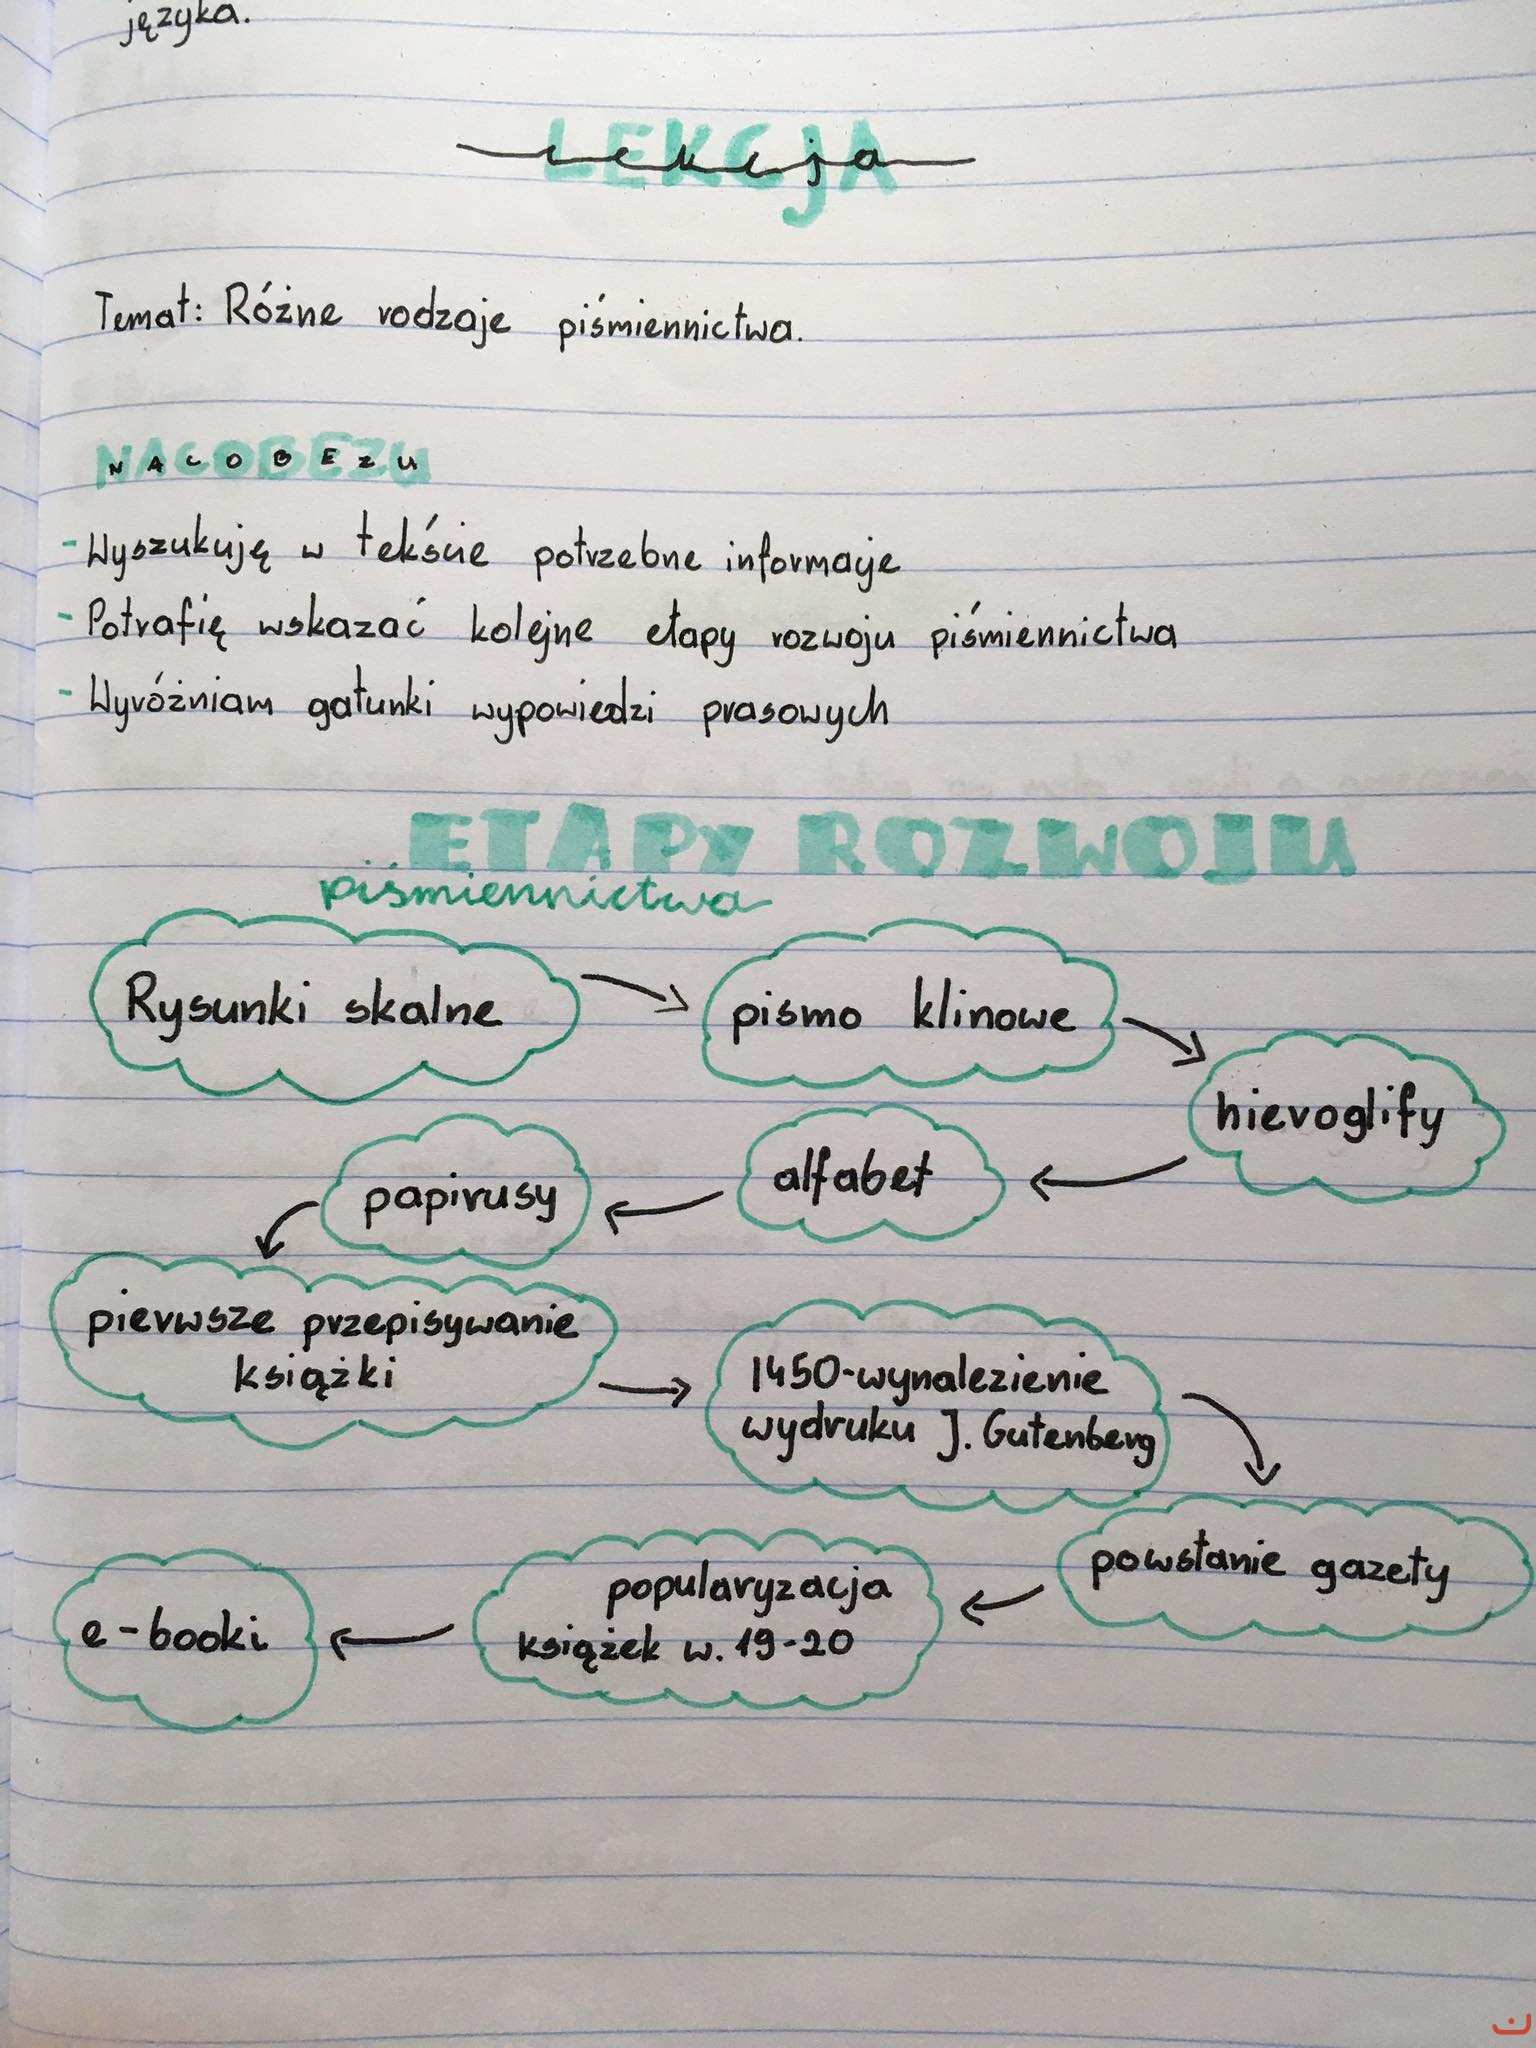 języka.
LEKCJA
lekcja
Temat: Różne rodzaje piśmiennictwa.
NACOBEZU
- Wyszukuję w tekście potrzebne informacje
- Potrafię wskazać kolejne etapy rozwoju piśmiennictwa
- Wyróżniam gatunki wypowiedzi prasowych
ETAPY ROZWOJU
piśmiennictwa
Rysunki skalne
pismo klinowe
hieroglify
alfabet
papirusy
pierwsze przepisywanie
książki
1450-wynalezienie
wydruku J. Gutenberg
powstanie gazety
popularyzacja
książek w. 19-20
e-booki